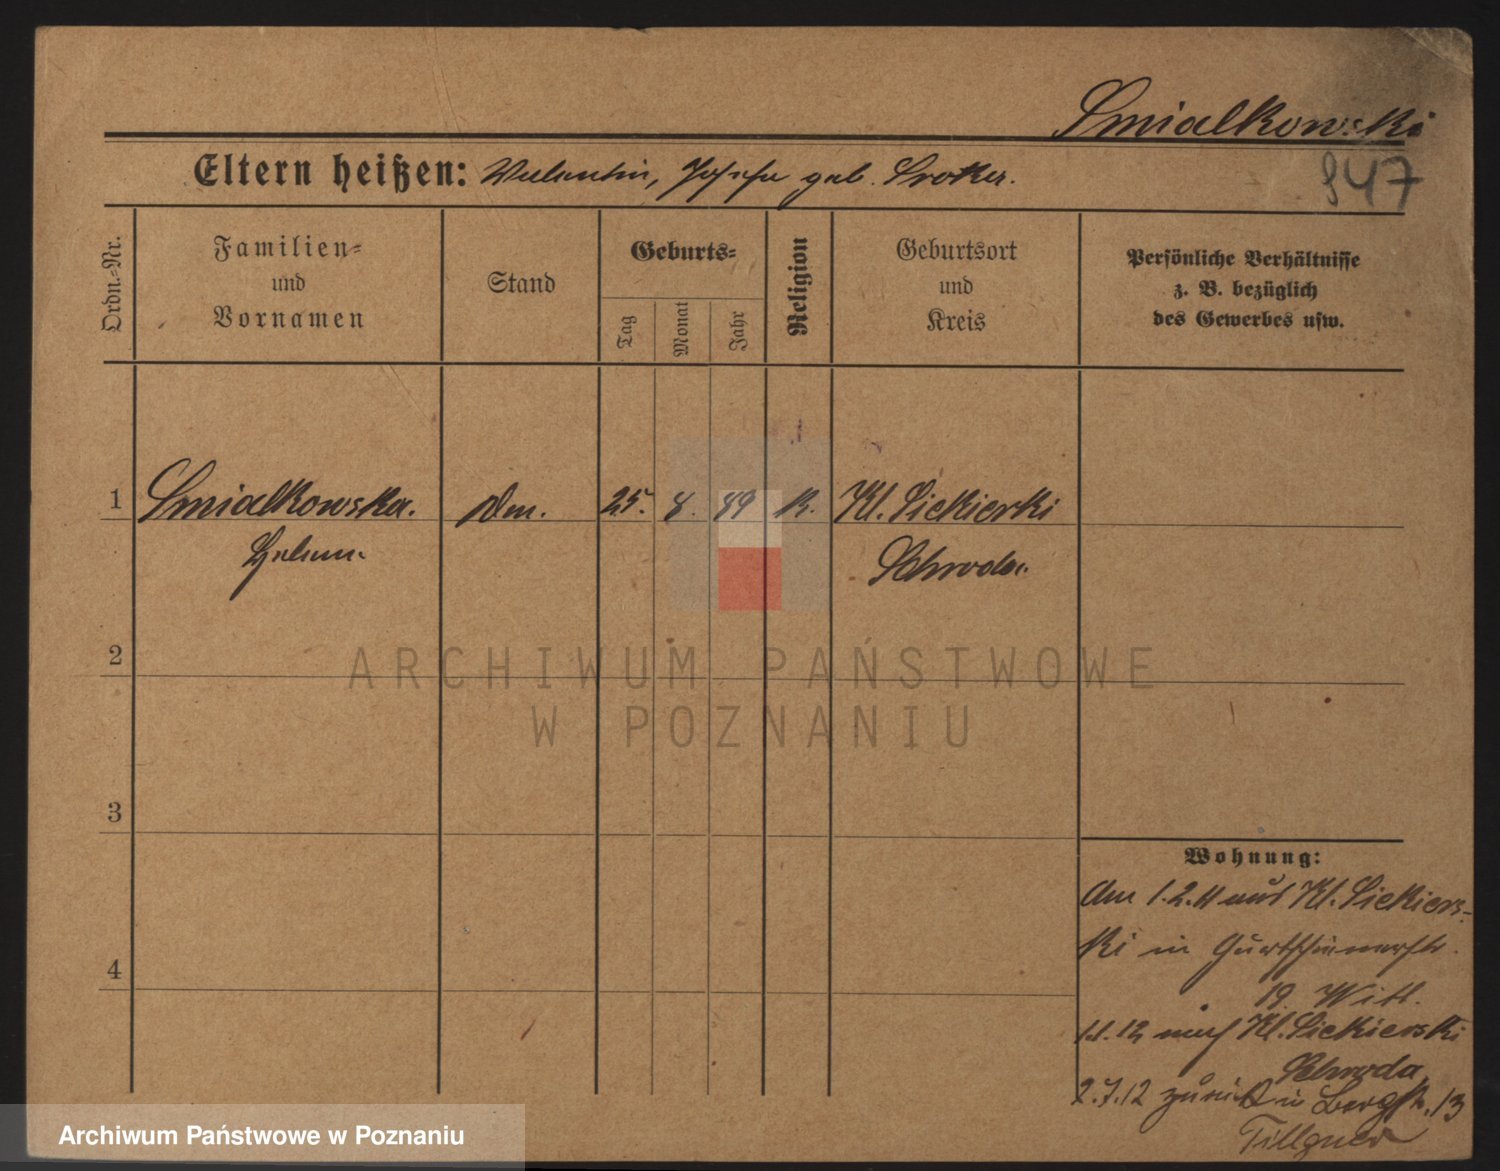 Smialkowski
Eltern heißen: Valentin, Josefa geb. Sroka.
947
Ordn.-Nr.
Familien-
und
Vornamen
Stand
Geburts-
Tag
Monat
Jahr
Religion
Geburtsort
und
Kreis
Persönliche Verhältnisse
z. B. bezüglich
des Gewerbes usw.
1 Smialkowska. 25. 8. 89 K. Kl. Siekierki
Helene Schroda.
2
ARCHIWUM PAŃSTWOWE
W POZNANIU
3
4
Wohnung:
Am 1.2.11 aus Kl. Siekiers-
ki in
19.
1.1.12 nach Kl. Siekierski
Schroda
2.7.12 zurück in Bergstr. 13
Tillgner
Archiwum Państwowe w Poznaniu